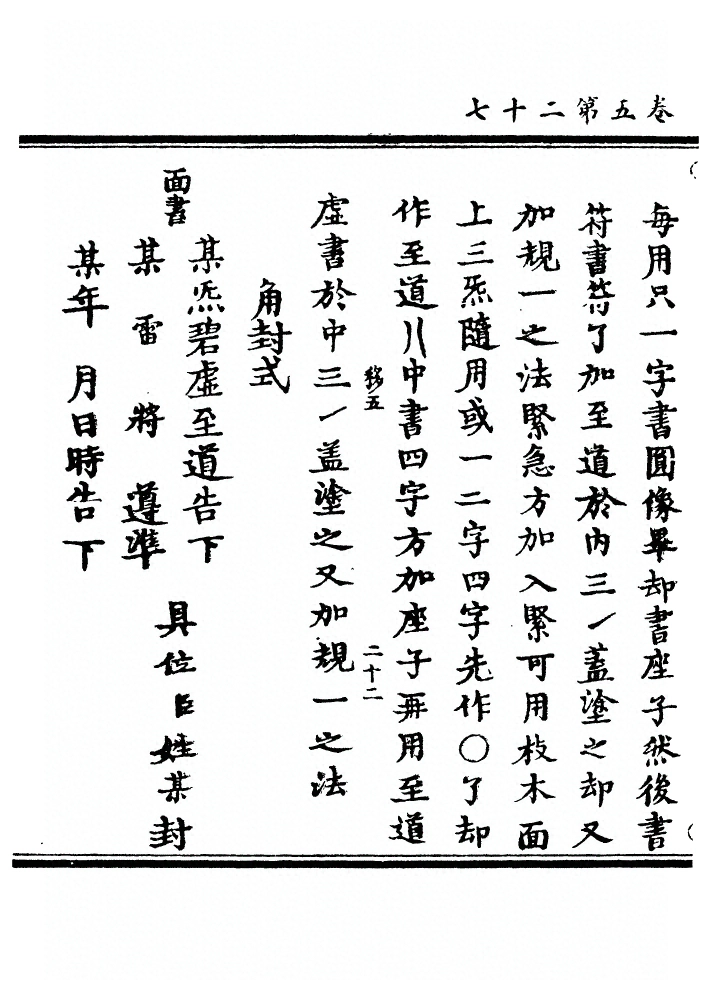 卷五第二十七
每用只一字書圓像畢却書座子然後書
符書符了加至道於内三丿蓋塗之却又
加規一之法緊急方加入緊可用枝木面
上三炁隨用或一二字四字先作〇了却
作至道〣中書四字方加座子再用至道
移五
二十二
虛書於中三丿盖塗之又加規一之法
角封式
面書
某炁碧虛至道告下
某雷將遵準
具位臣姓某封
某年月日時告下